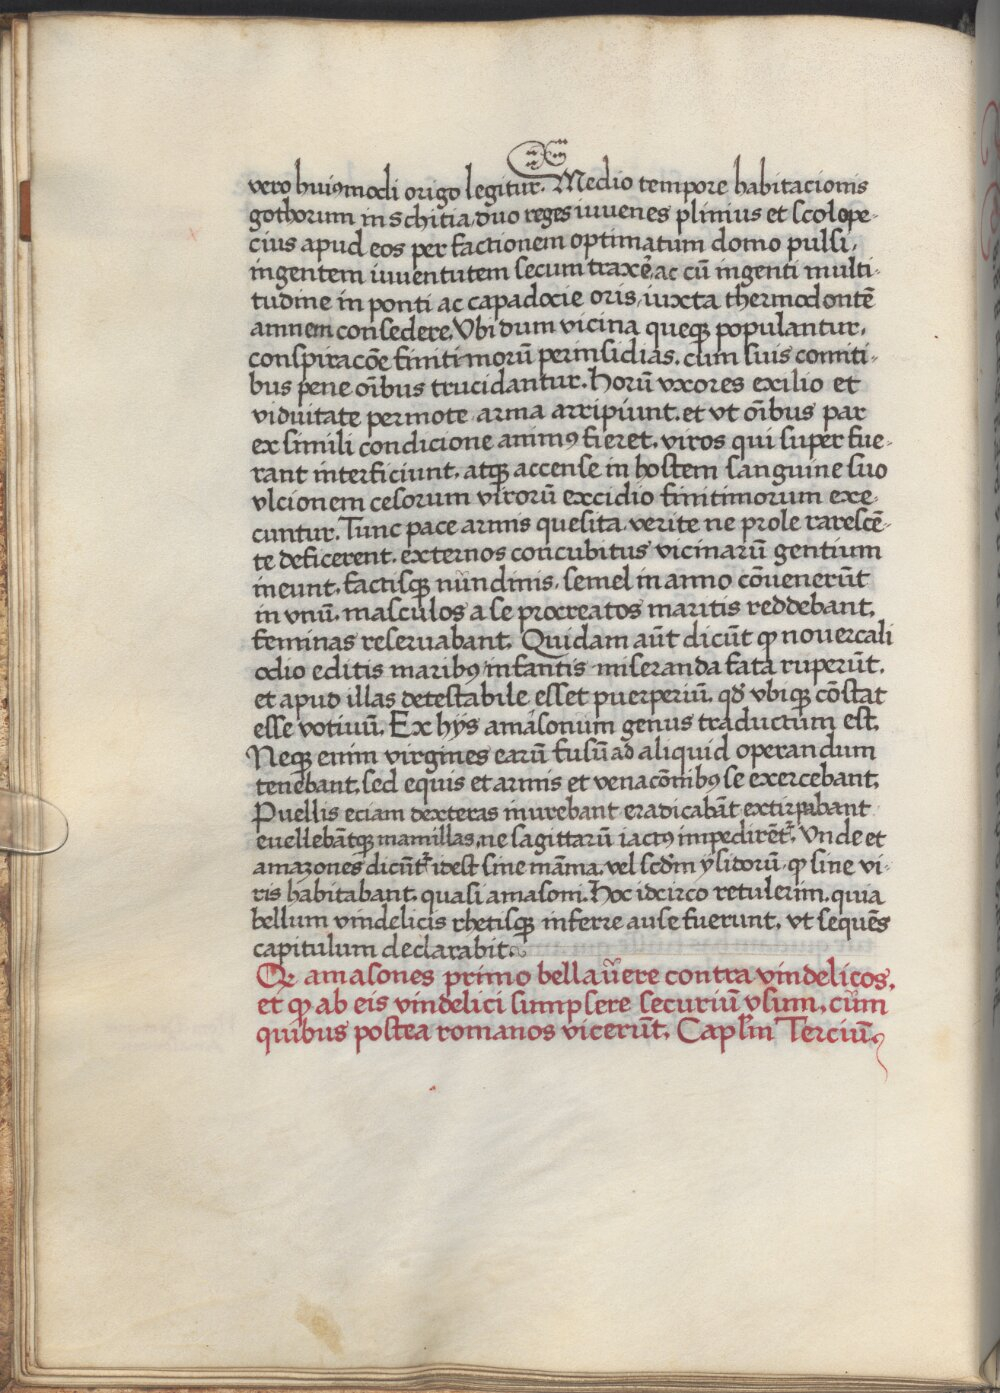 vero huiꝰmodi origo legitur. Medio tempore habitacionis
gothorum in schitia, duo reges iuvenes plinius et scolope-
cius apud eos per factionem optimatum domo pulsi,
ingentem iuventutem secum traxẽ, ac cũ ingenti multi-
tudine in ponti ac capadocie oris, iuxta thermodontẽ
amnem consedere, Vbi dum vicina queqꝫ populantur,
conspiracõe finitimorũ per insidias, cum suis comiti-
bus pene oĩbus trucidantur. Horũ vxores exilio et
viduitate permote arma arripiunt, et vt oĩbus par
ex simili condicione animꝰ fieret, viros qui super fue-
rant interficiunt, atqꝫ accense in hostem sanguine suo
vlcionem cesorum virorũ excidio finitimorum exe-
cuntur. Tunc pace armis quesita, verite ne prole raresce̅-
te deficerent, externos concubitus vicinarũ gentium
ineunt, factisqꝫ nundinis, semel in anno cõvenerũt
in vnũ, masculos a se procreatos maritis reddebant,
feminas reseruabant. Quidam aũt dicũt ꝙ novercali
odio editis maribꝰ infantis miseranda fata ruperũt,
et apud illas detestabile esset puerperiũ, qđ vbiqꝫ cõstat
esse votivũ. Ex hijs amasonum genus traductum est.
Neqꝫ enim virgines earũ fusũ ad aliquid operandum
tenebant, sed equis et armis et venacõnibꝰ se exercebant,
Puellis eciam dexteras inurebant eradicabãt extirpabant
euellebãtqꝫ mamillas, ne sagittarũ iactꝰ impedirẽt᷑. Vnde et
amazones dicũt᷑ idest sine mãma, vel scđm ysidorũ, ꝙ sine vi-
ris habitabant, quasi amasoni. Hoc idcirco retulerim, quia
bellum vindelicis rhetisqꝫ inferre ause fuerunt, vt sequẽs
capitulum declarabit.
Qꝫ amasones primo bella g̃ere contra vindelicos,
et ꝙ ab eis vindelici sumpsere securiũ vsum, cum
quibus postea romanos vicerũt. Capl̃m Terciũ.